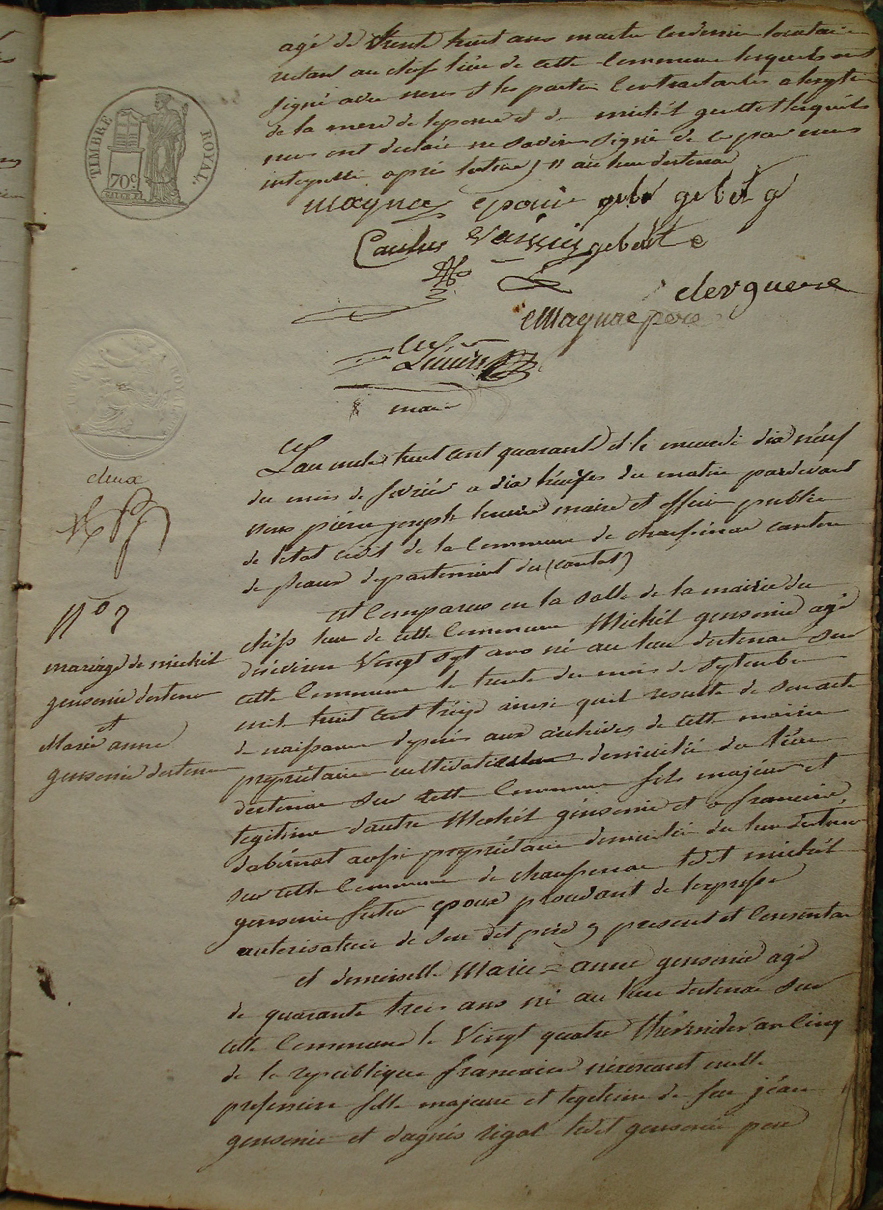 agé de trente huit ans maitre cordonnier locataire
restant au chef lieu de cette Commune lesquels ont
signé avec nous et les parties Contractantes a lexeption
de la mere de lepouse et de michel lesquels
nous ont declaré ne savoir signé de ce par nous
interpellé aprés lecture) // au lieu destenac
TIMBRE ROYAL
70c
magnac epoux
Caulus
magnac pere
clerguerie
maire
deux
Lan mile huit cent quarante et le mercredi dix neuf
du mois de fevrier a dix heures du matin pardevant
nous pierre joseph maire et officier public
de l'etat civil de la Commune de chaussenac canton
de pleaux departement du (cantal)
est Comparus en la salle de la mairie du
chefs lieu de cette Commune Michel gensenie agé
denviron Vingt sept ans né au lieu destenac sur
cette Commune le trente du mois de septembre
mil huit cent treize ainsi quil resulte de son acte
de naissance deposés aux archives de cette mairie
propriétaire cultivateur domicilié du lieu
destenac sur cette Commune fils majeur et
legitime dautre Michel gensenie et de francoise
dabernat aussi propriétaire domicilié du lieu destenac
sur cette Commune de chaussenac ledit michel
gensenie futur epoux procedant de lexpresse
autorisation de son dit pere y present et Consentant
et demoiselle Marie = anne gensenie agé
de quarante trois ans né au lieu destenac sur
cette Commune le Vingt quatre thermidor an Cinq
de la republique francaise nexercant nulle
profession fille majeure et legitime de feu jean
gensenie et dagnés rigal ledit gensenie pere
N° 2
mariage de michel
gensenie destenac
et
Marie anne
gensenie destenac